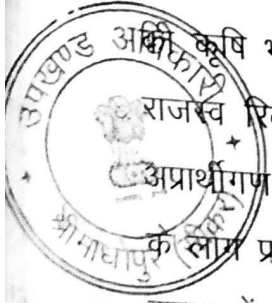 उपखण्ड अधिकारी
श्रीमाधोपुर (सीकर)
की कृषि
राजस्व
अप्रार्थीगण
के